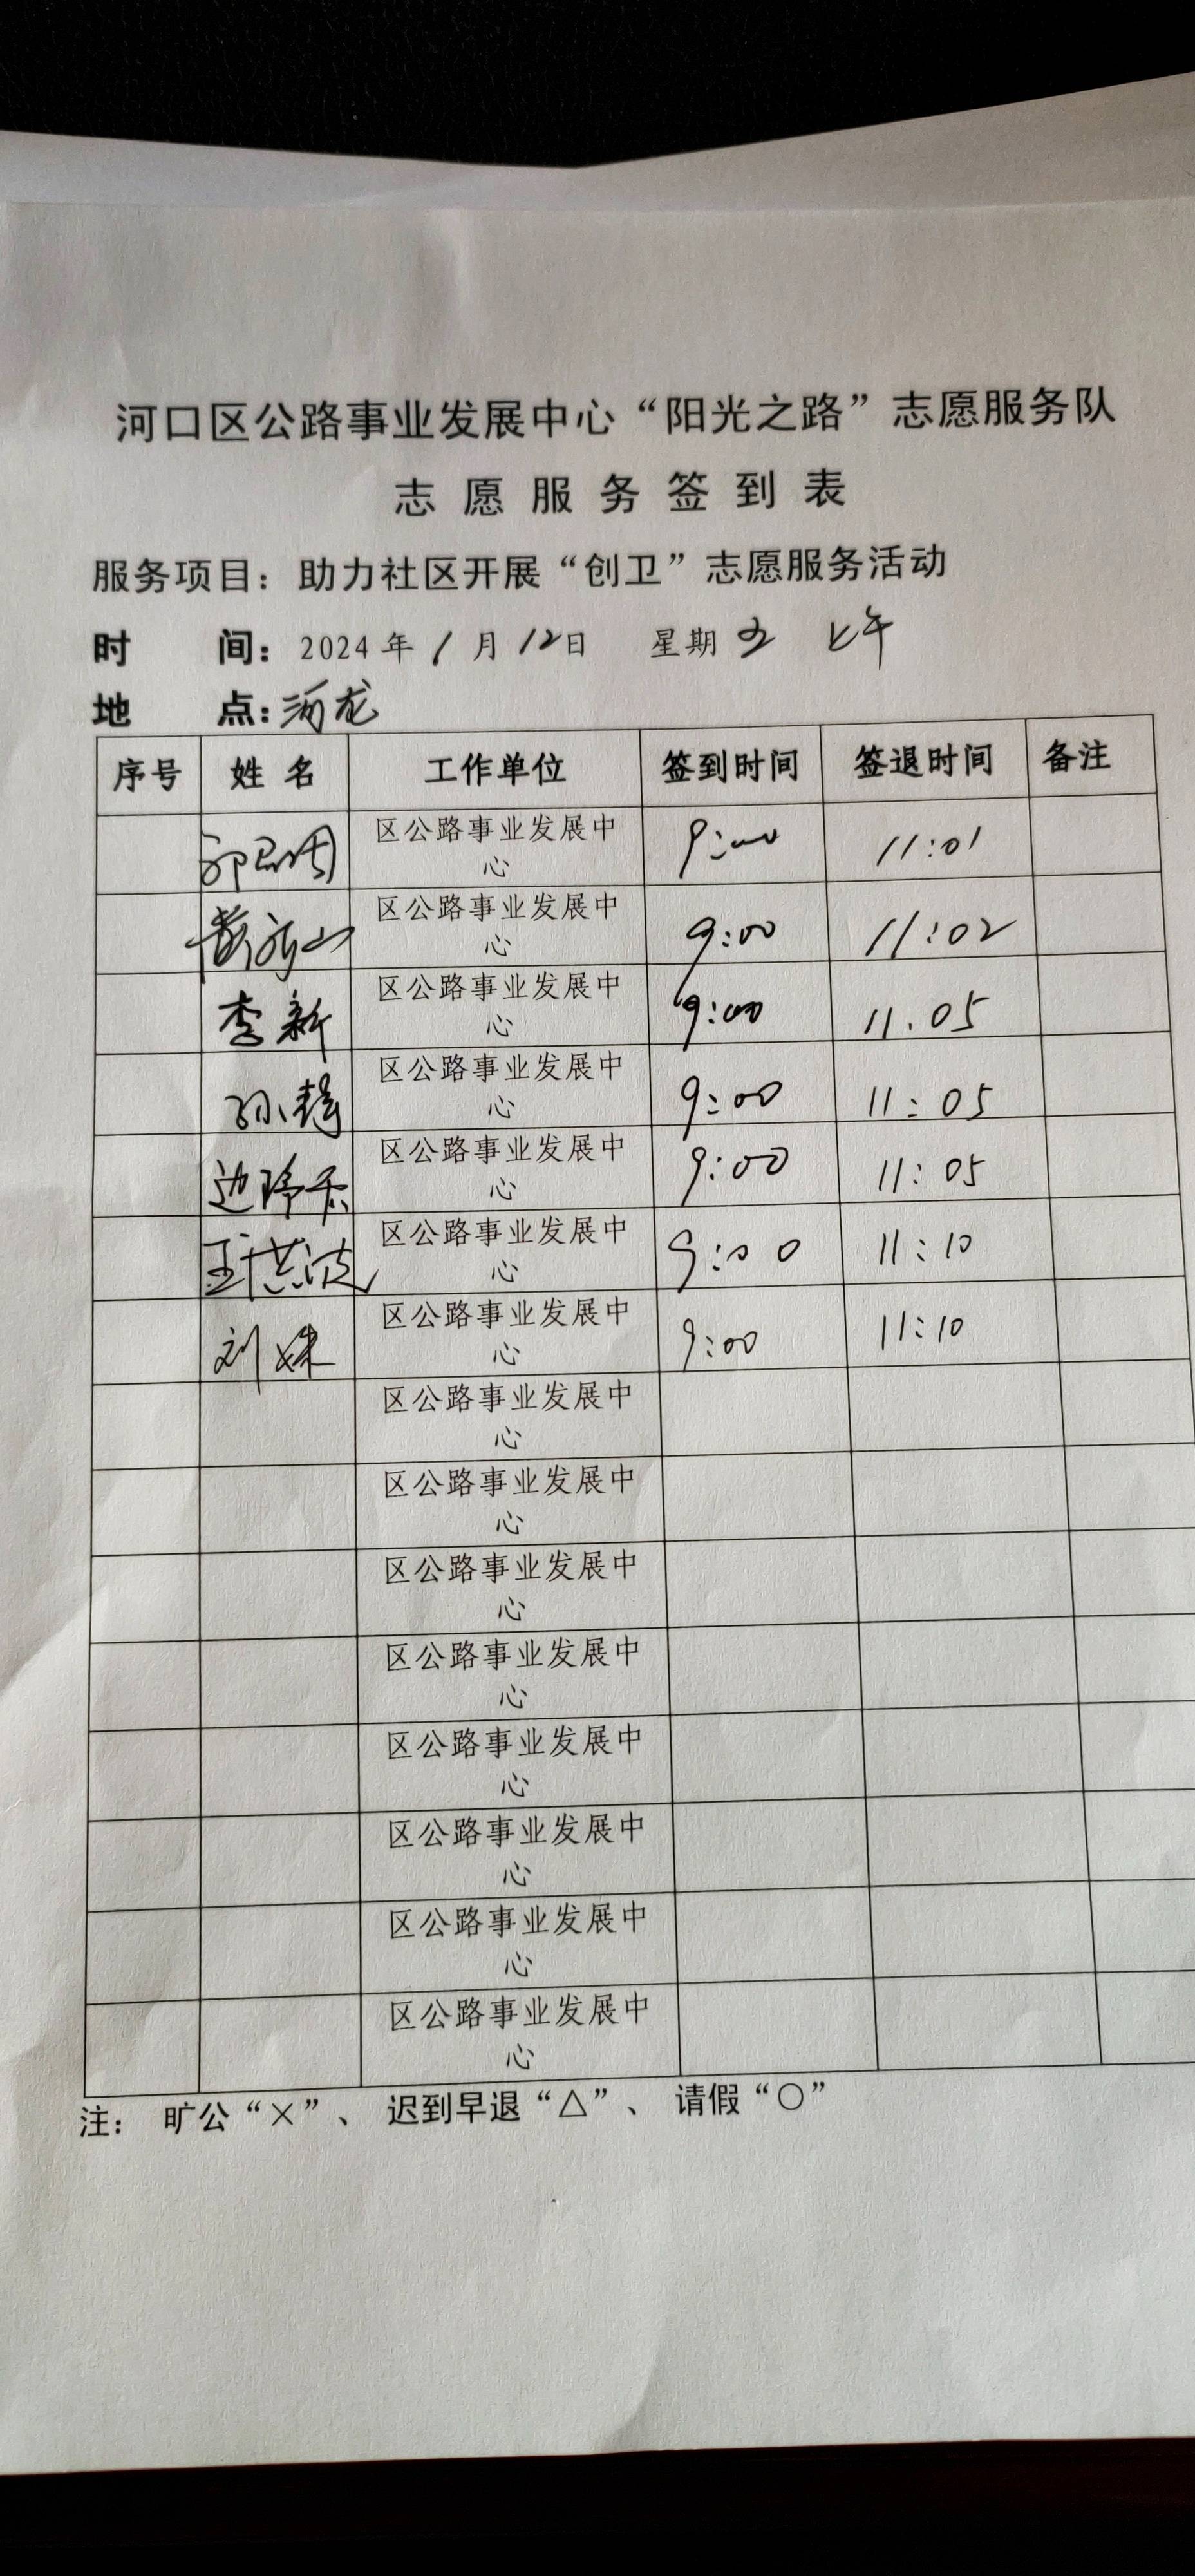 河口区公路事业发展中心“阳光之路”志愿服务队
志愿服务签到表
服务项目：助力社区开展“创卫”志愿服务活动
时 间：2024年1月12日 星期五 上午
地 点：河龙
序号 姓名 工作单位 签到时间 签退时间 备注
区公路事业发展中
心
9:00 11:01
区公路事业发展中
心
9:00 11:02
李新 区公路事业发展中
心
9:00 11.05
区公路事业发展中
心
9:00 11:05
区公路事业发展中
心
9:00 11:05
王洪波 区公路事业发展中
心
9:00 11:10
刘姝 区公路事业发展中
心
9:00 11:10
区公路事业发展中
心
区公路事业发展中
心
区公路事业发展中
心
区公路事业发展中
心
区公路事业发展中
心
区公路事业发展中
心
区公路事业发展中
心
区公路事业发展中
心
注： 旷公“×”、 迟到早退“△”、 请假“○”